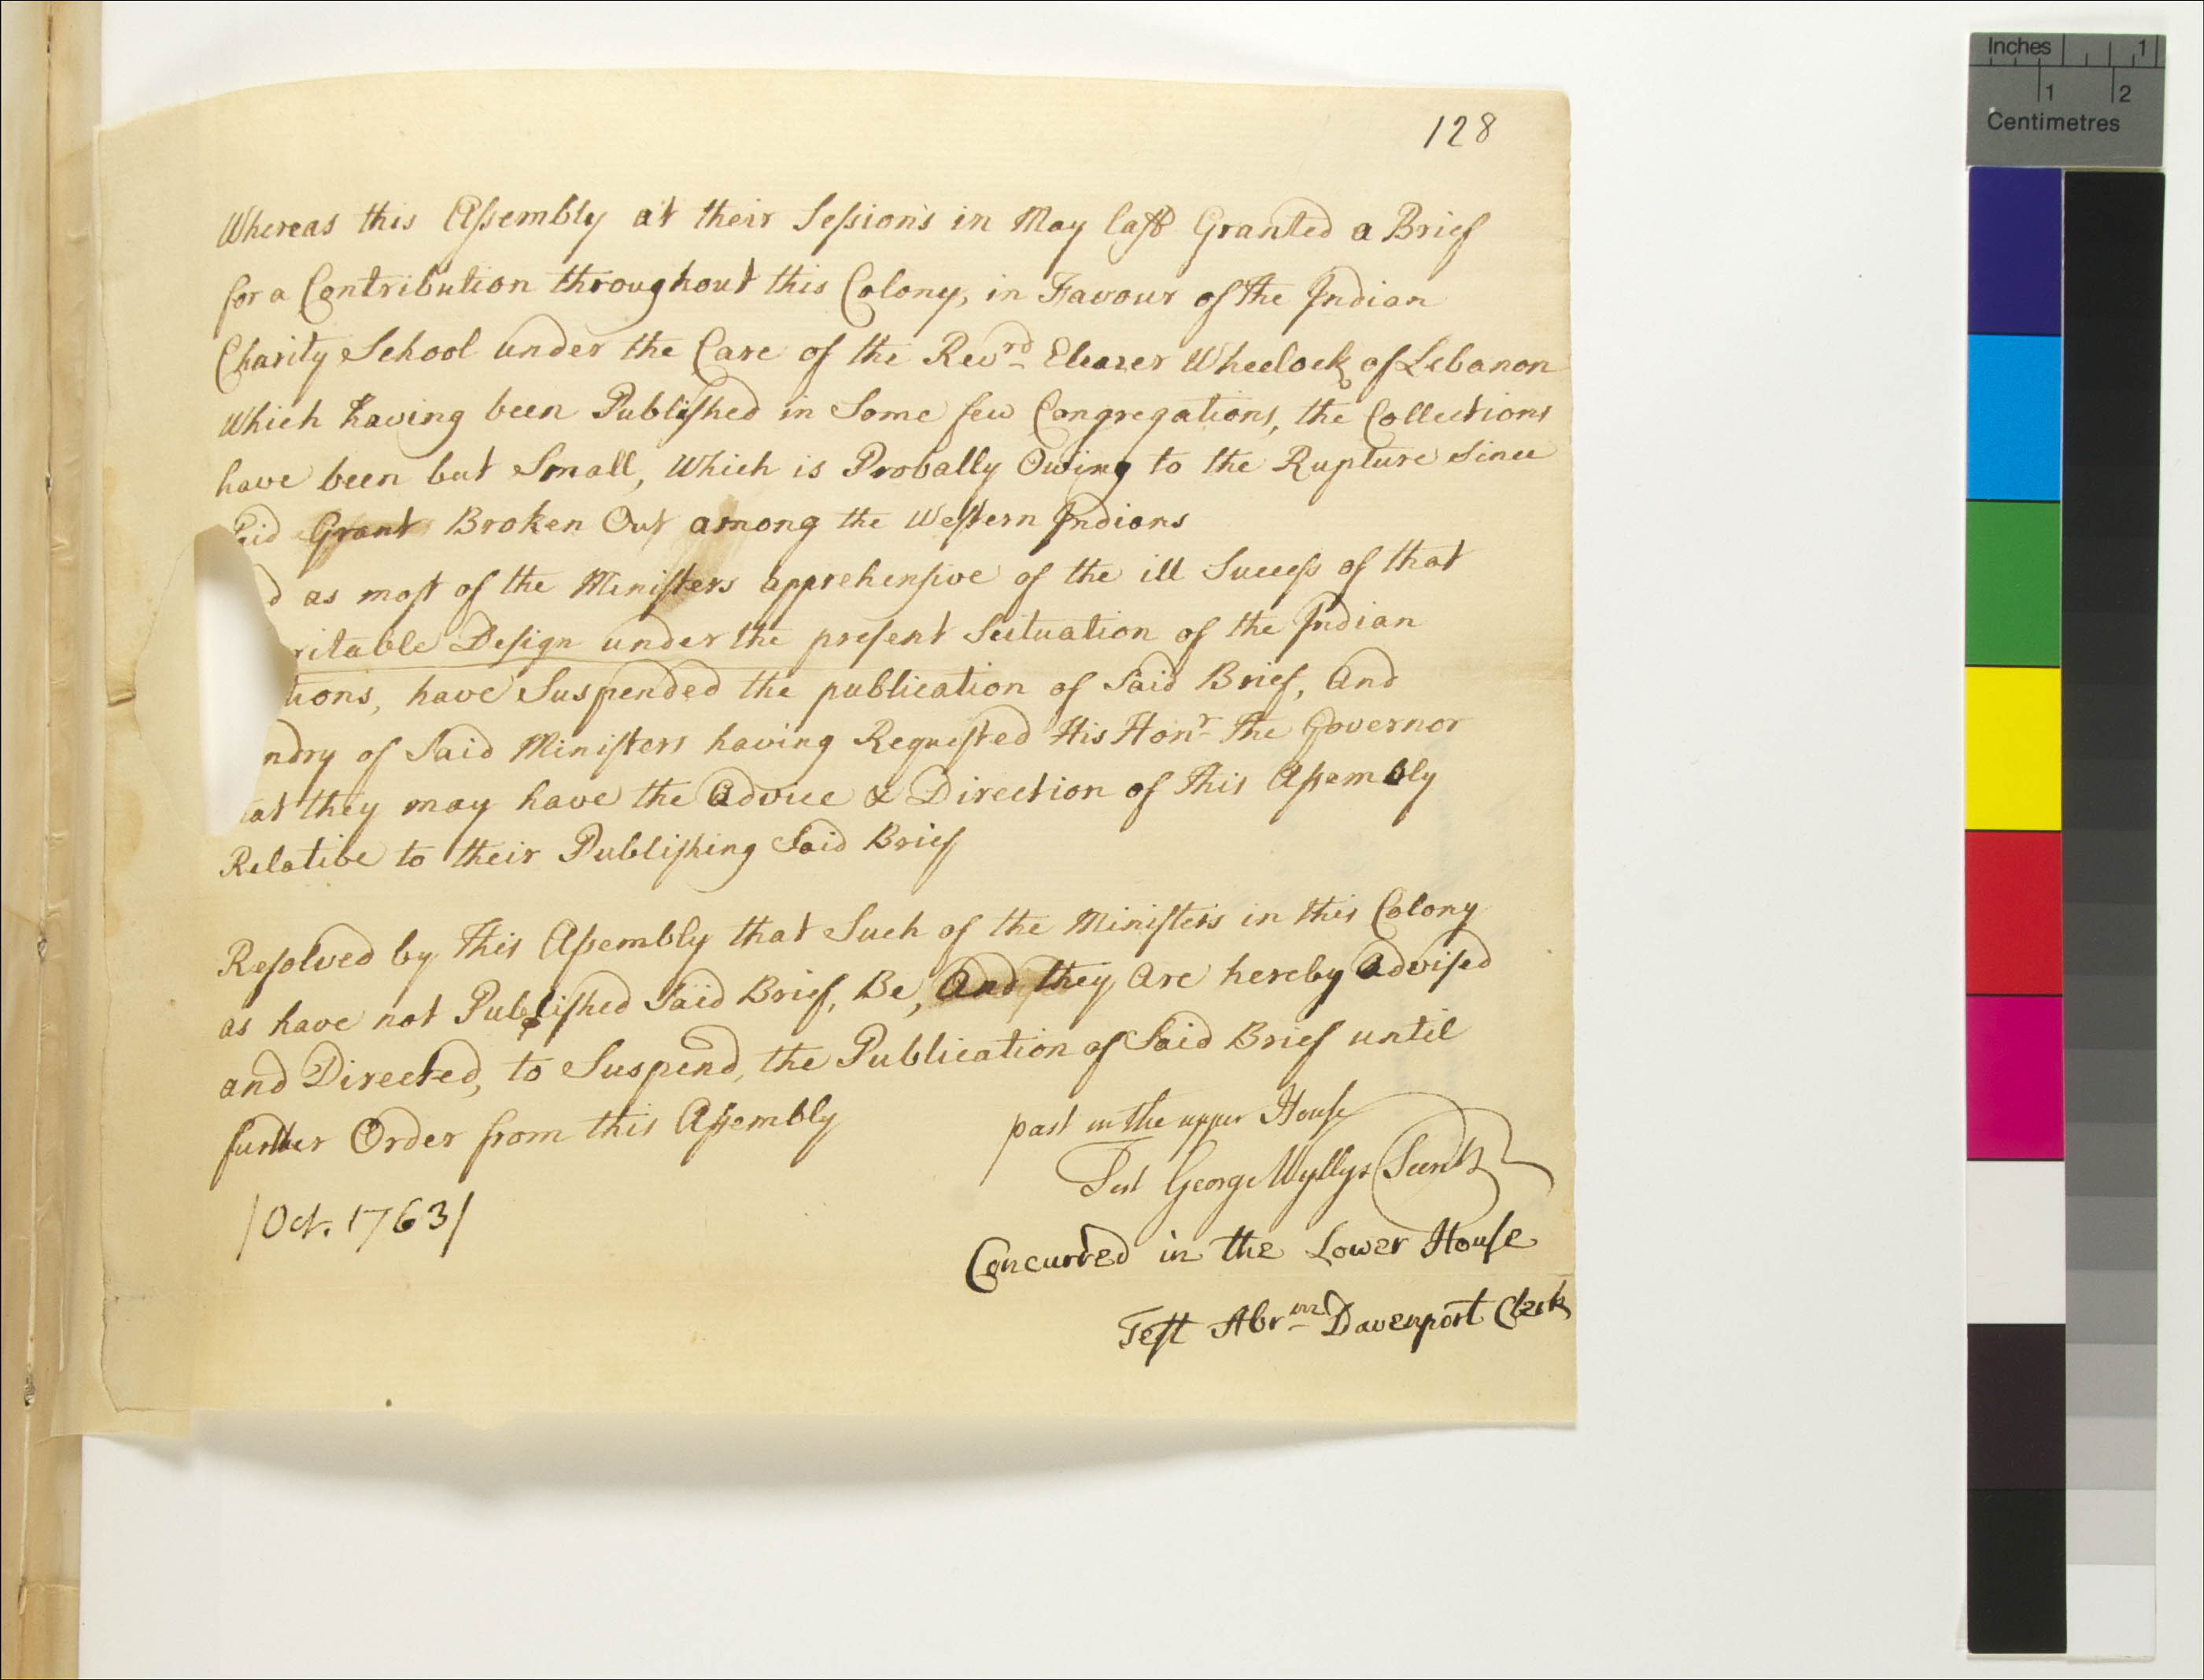 128
Whereas this Assembly at their Sessions in May last Granted a Brief
for a Contribution throughout this Colony, in Favour of the Indian
Charity School under the Care of the Revrd Eleazer Wheelock of Lebanon
Which having been Published in Some few Congregations, the Collections
have been but Small, Which is Probally Owing to the Rupture Since
aid Grant Broken Out among the Western Indians
d as most of the Ministers apprehensive of the ill Success of that
ritable Design under the present Scituation of the Indian
tions, have Suspended the publication of Said Brief, And
ndry of Said Ministers having Requested His Honr The Governor
at they may have the Advice & Direction of This Assembly
Relative to their Publishing Said Brief
Resolved by This Assembly that Such of the Ministers in this Colony
as have not Published Said Brief, Be, And they Are hereby Advised
and Directed, to Suspend, the Publication of Said Brief until
further Order from this Assembly
past in the upper House
Test George Wyllys Secretry
/Oct. 1763/
Concurred in the Lower House
Test Abrm Davenport Clerk
Inches 1
1 2
Centimetres